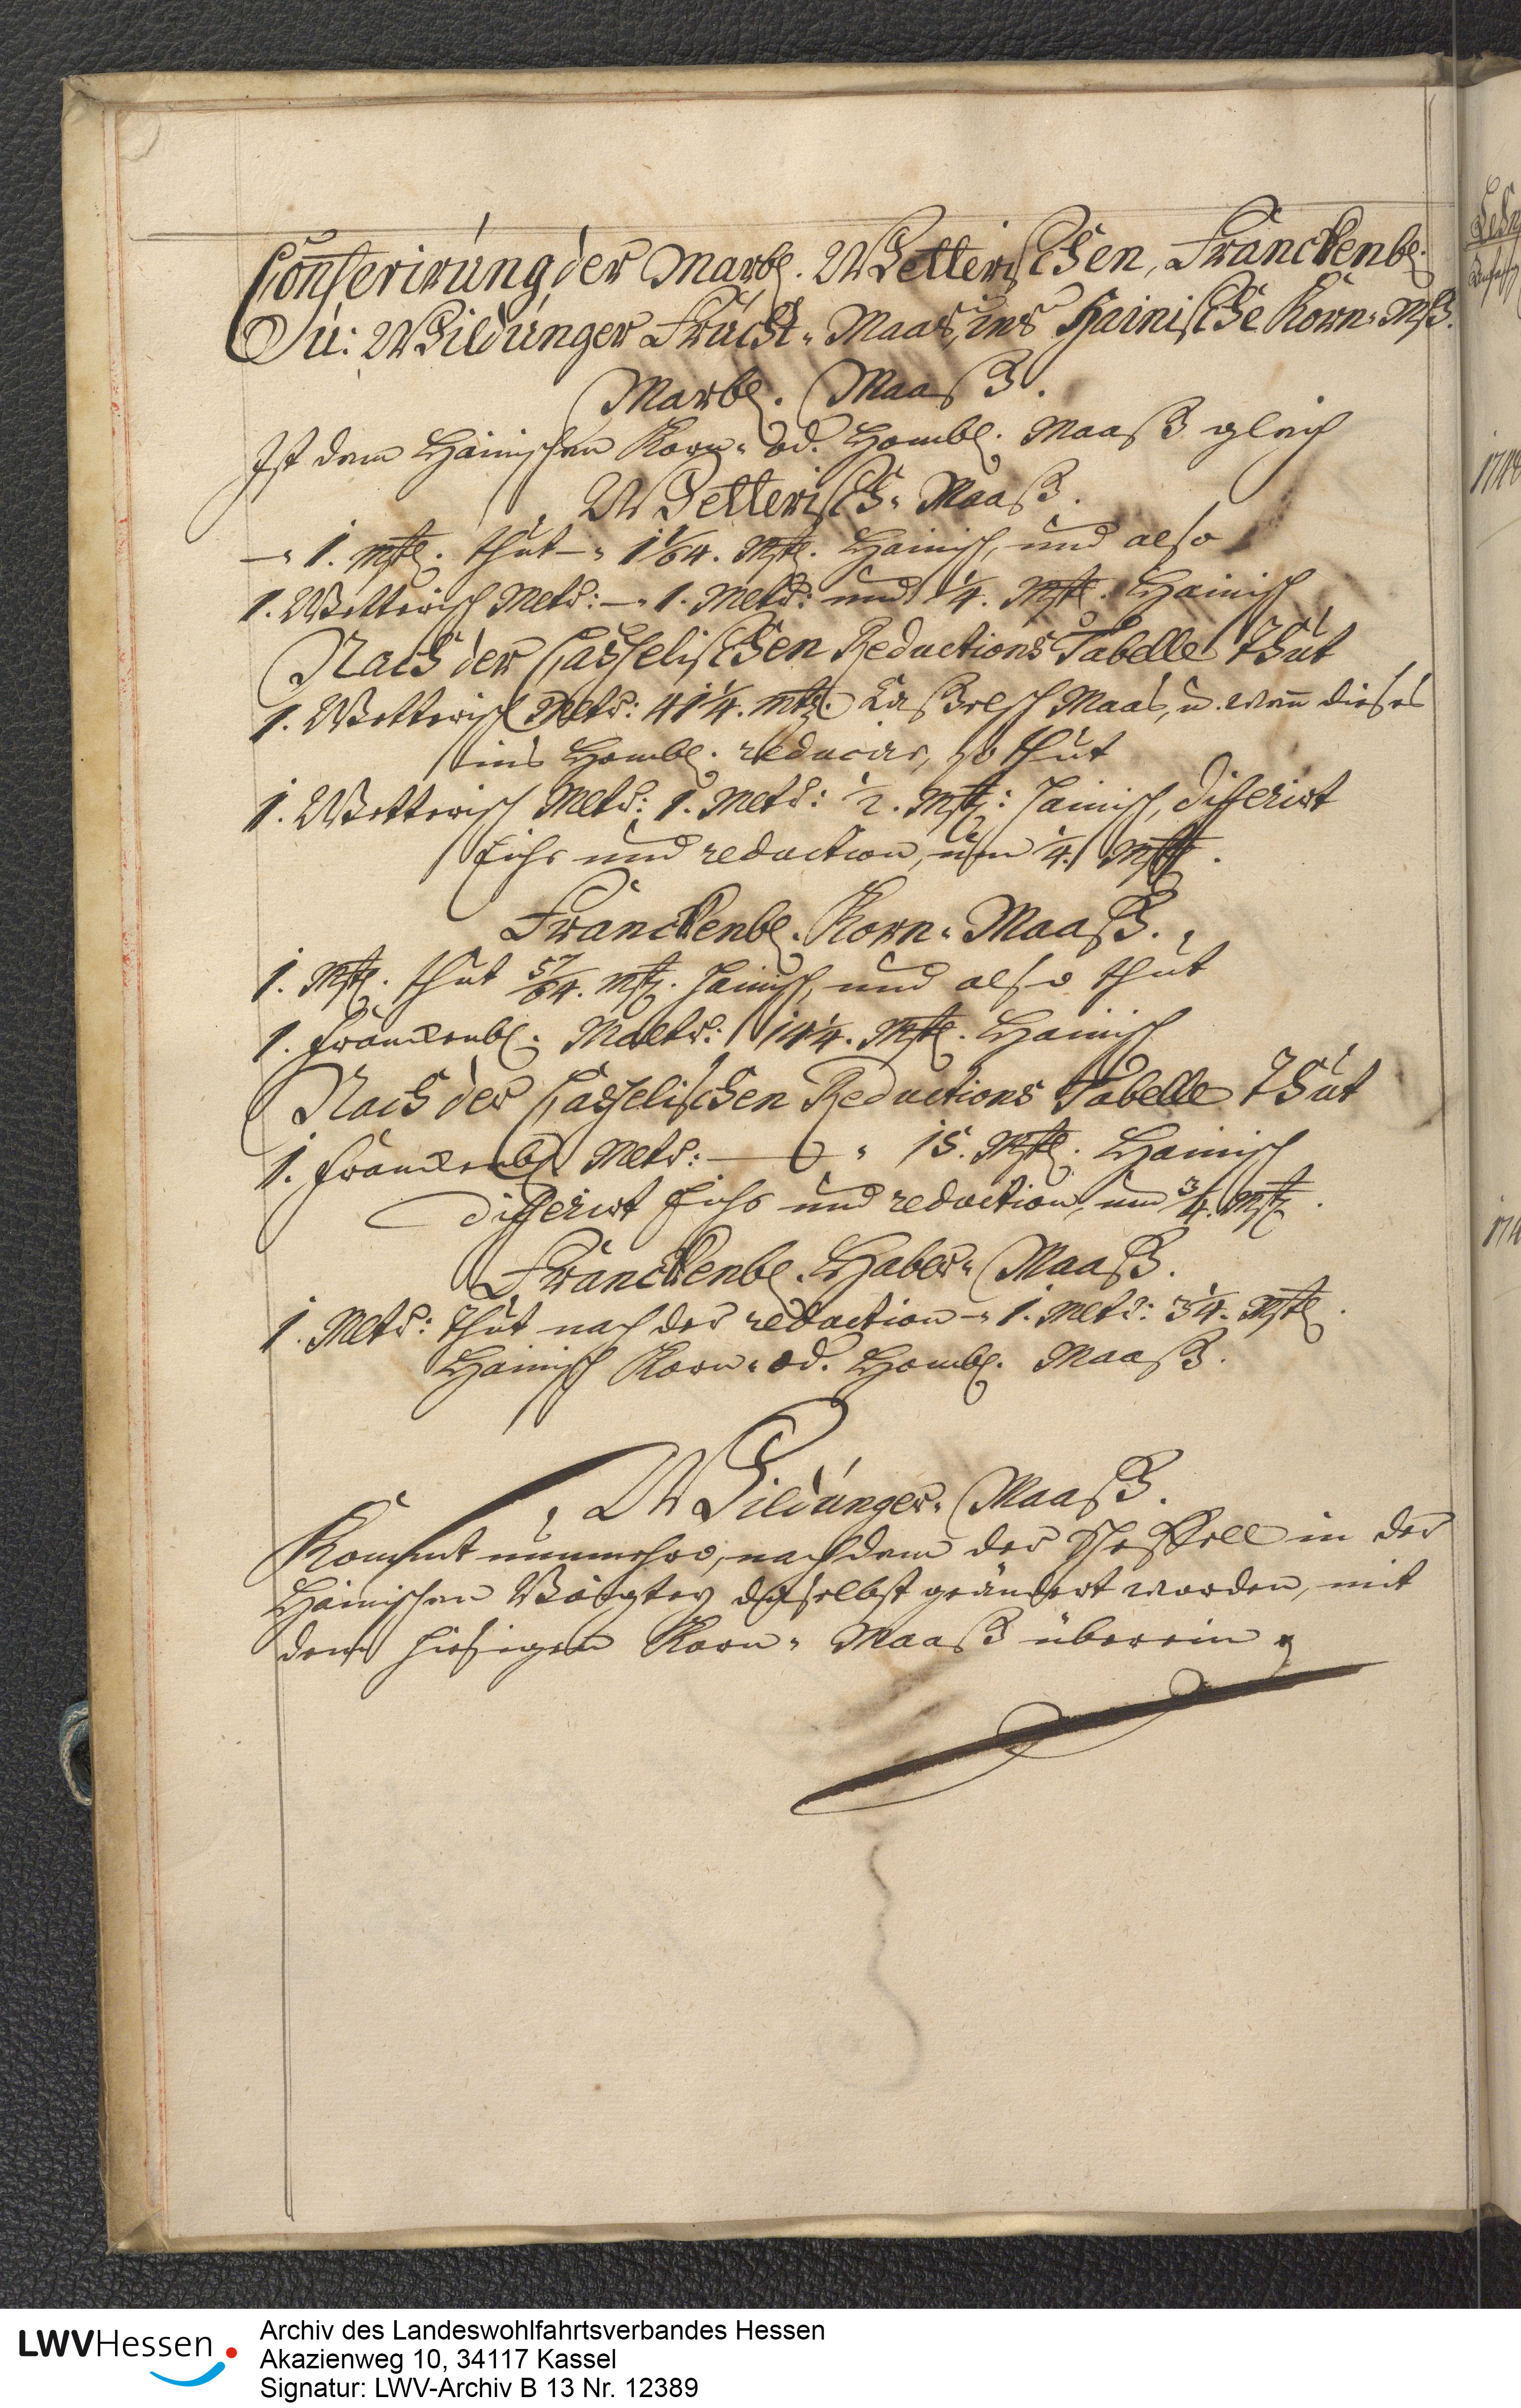 Conferirung der Marb. Wetterischen, Franckenb.
u: Wildunger Frucht- Maas, ins Hainische Korn- Mß.
Marb. Maaß.
Ist dem Hainischen Korn- od. Homb. Maaß gleich
Wetterisch- Maaß.
1. Mste. thut 1 1/64. Mste. Hainisch, und also
1. Wetterisch Mltr: 1. Mltr: und 1/4. Mste. Hainisch
Nach der Casselischen Reductions Tabelle thut
1. Wetterisch Mltr: 41 1/4. Mtz. Caßelsch Maas, u. wenn dieses
ins Homb. reducirt, so thut
1. Wetterisch Mltr: 1. Mltr: 1/2. Mste: Hainisch, differirt
Eichs und reduction, um 1/4. Mste.
Franckenb. Korn- Maaß.
1. Mste. thut 57/64. Mste. Hainisch, und also thut
1. Franckenb. Maltr: 14 1/4. Mste. Hainisch
Nach der Casselischen Reductions Tabelle thut
1. Franckenb. Mltr: 15. Mste. Hainisch
differirt Eichs und reduction, um 3/4. Mste.
Franckenb. Haber- Maaß.
1. Mltr: thut nach der reduction 1. Mltr: 3 1/4. Mste.
Hainisch Korn- od. Homb. Maaß.
Wildunger- Maaß.
Kommt nunmehro, nachdem der Scheffell in der
Hainischen Voigtey daselbst geändert worden, mit
dem hiesigen Korn- Maaß überein
LWVHessen
Archiv des Landeswohlfahrtsverbandes Hessen
Akazienweg 10, 34117 Kassel
Signatur: LWV-Archiv B 13 Nr. 12389